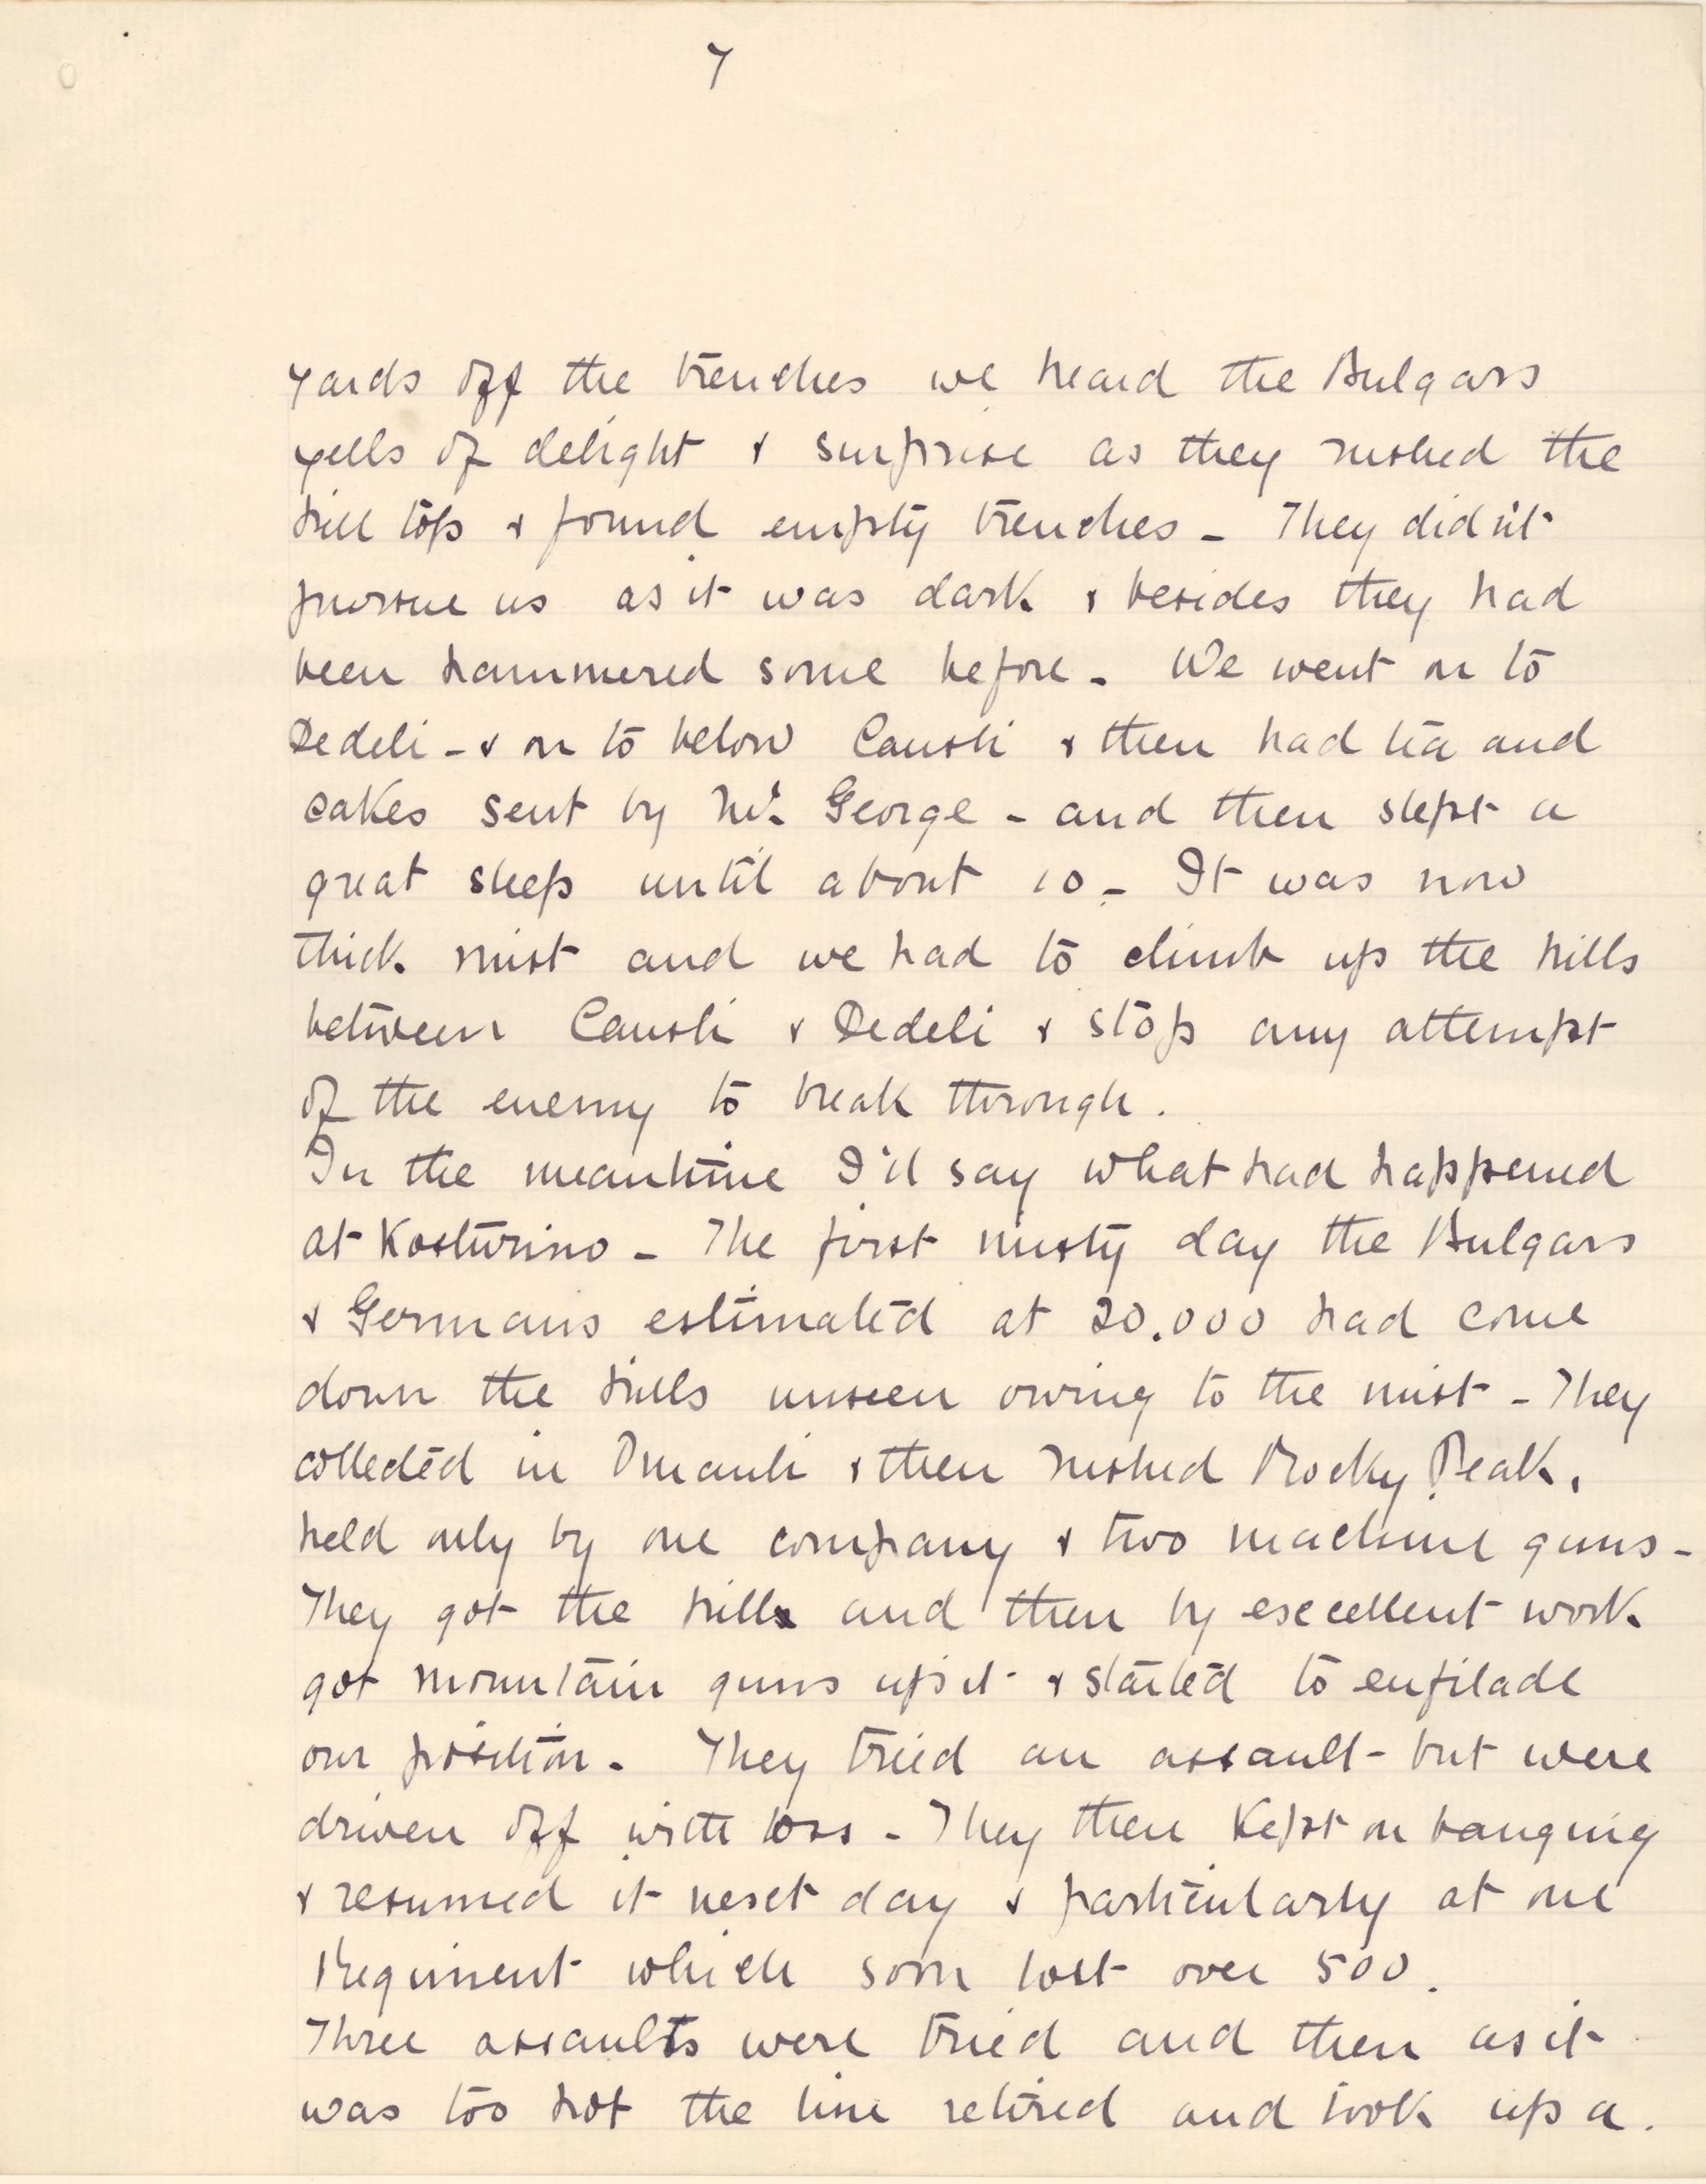 7
yards off the trenches we heard the Bulgars
yells of delight & surprise as they rushed the
hill top & found empty trenches - They didn't
pursue us as it was dark & besides they had
been hammered some before - We went on to
Dedeli - & on to below Causli & then had tea and
cakes sent by Mr. George - and then slept a
great sleep until about 10 - It was now
thick mist and we had to climb up the hills
between Causli & Dedeli & stop any attempt
of the enemy to break through.
In the meantime I'll say what had happened
at Kosturino - The first misty day the Bulgars
& Germans estimated at 20.000 had come
down the hills unseen owing to the mist - They
collected in Ormanli & then rushed Rocky Peak,
held only by one company & two machine guns -
They got the hill and then by excellent work
got mountain guns up it & started to enfilade
our position - They tried an assault - but were
driven off with loss - They then kept on banging
& resumed it next day & particularly at one
Regiment which soon lost over 500.
Three assaults were tried and then as it
was too hot the line retired and took up a